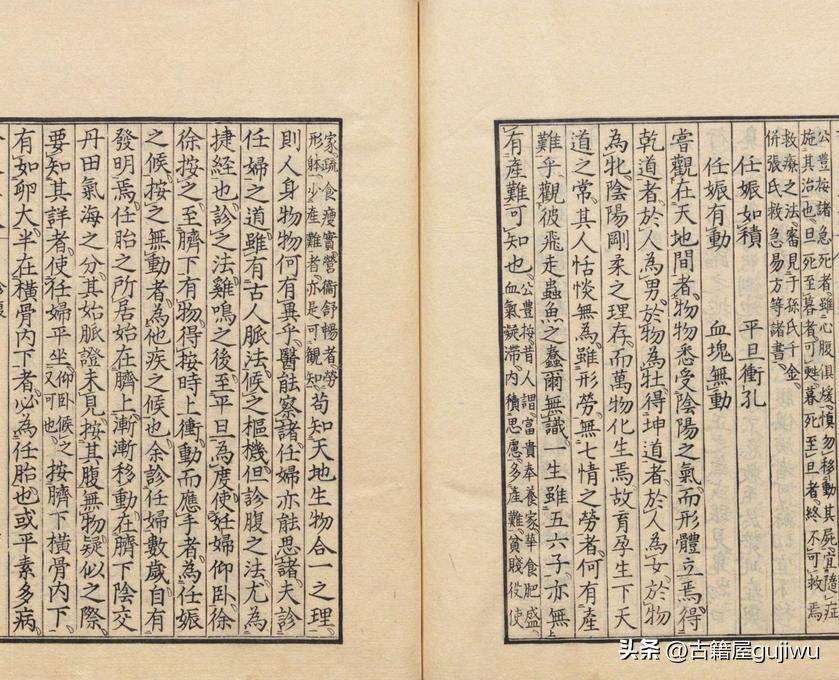 公豊按諸急死者雖心腹俱煖慎勿移動其屍宜隨症
施其治也旦死至暮者可甦暮死至旦者終不可救焉
救療之法審見于孫氏千金
併張氏救急易方等諸書
任娠如積　平旦衝孔
任娠有動　血塊無動
嘗觀在天地間者物物悉受陰陽之氣而形體立焉得
乾道者於人為男於物為牡得坤道者於人為女於物
為牝陰陽剛柔之理存而萬物化生焉故育孕生下天
道之常其人恬惔無為雖形勞無七情之勞者何有產
難乎觀彼飛走蟲魚之蠢爾無識一生雖五六子亦無
有產難可知也
公豊按昔人謂富貴奉養家華食肥盛
血氣凝滯內積思慮多產難貧賤役使
家疏食瘦實營衞舒暢者勞
形躰少產難者亦是可観知
苟知天地生物合一之理
則人身物物何有異乎醫能察諸任婦亦能思諸夫診
任婦之道雖有古人脈法候之樞機但診腹之法尤為
捷経也診之法雞鳴之後至平旦為度使妊婦仰卧徐
徐按之至臍下有物得按時上衝動而應手者為任娠
之候按之無動者為他疾之候也余診任婦數歲自有
發明焉任胎之所居始在臍上漸漸移動在臍下陰交
丹田氣海之分其始脈證未見按其腹無物疑似之際
要知其詳者使任婦平坐
仰卧候之
又可也
按臍下橫骨內下
有如卵大半在橫骨内下者必為任胎也或平素多病
头条 @古籍屋gujiwu